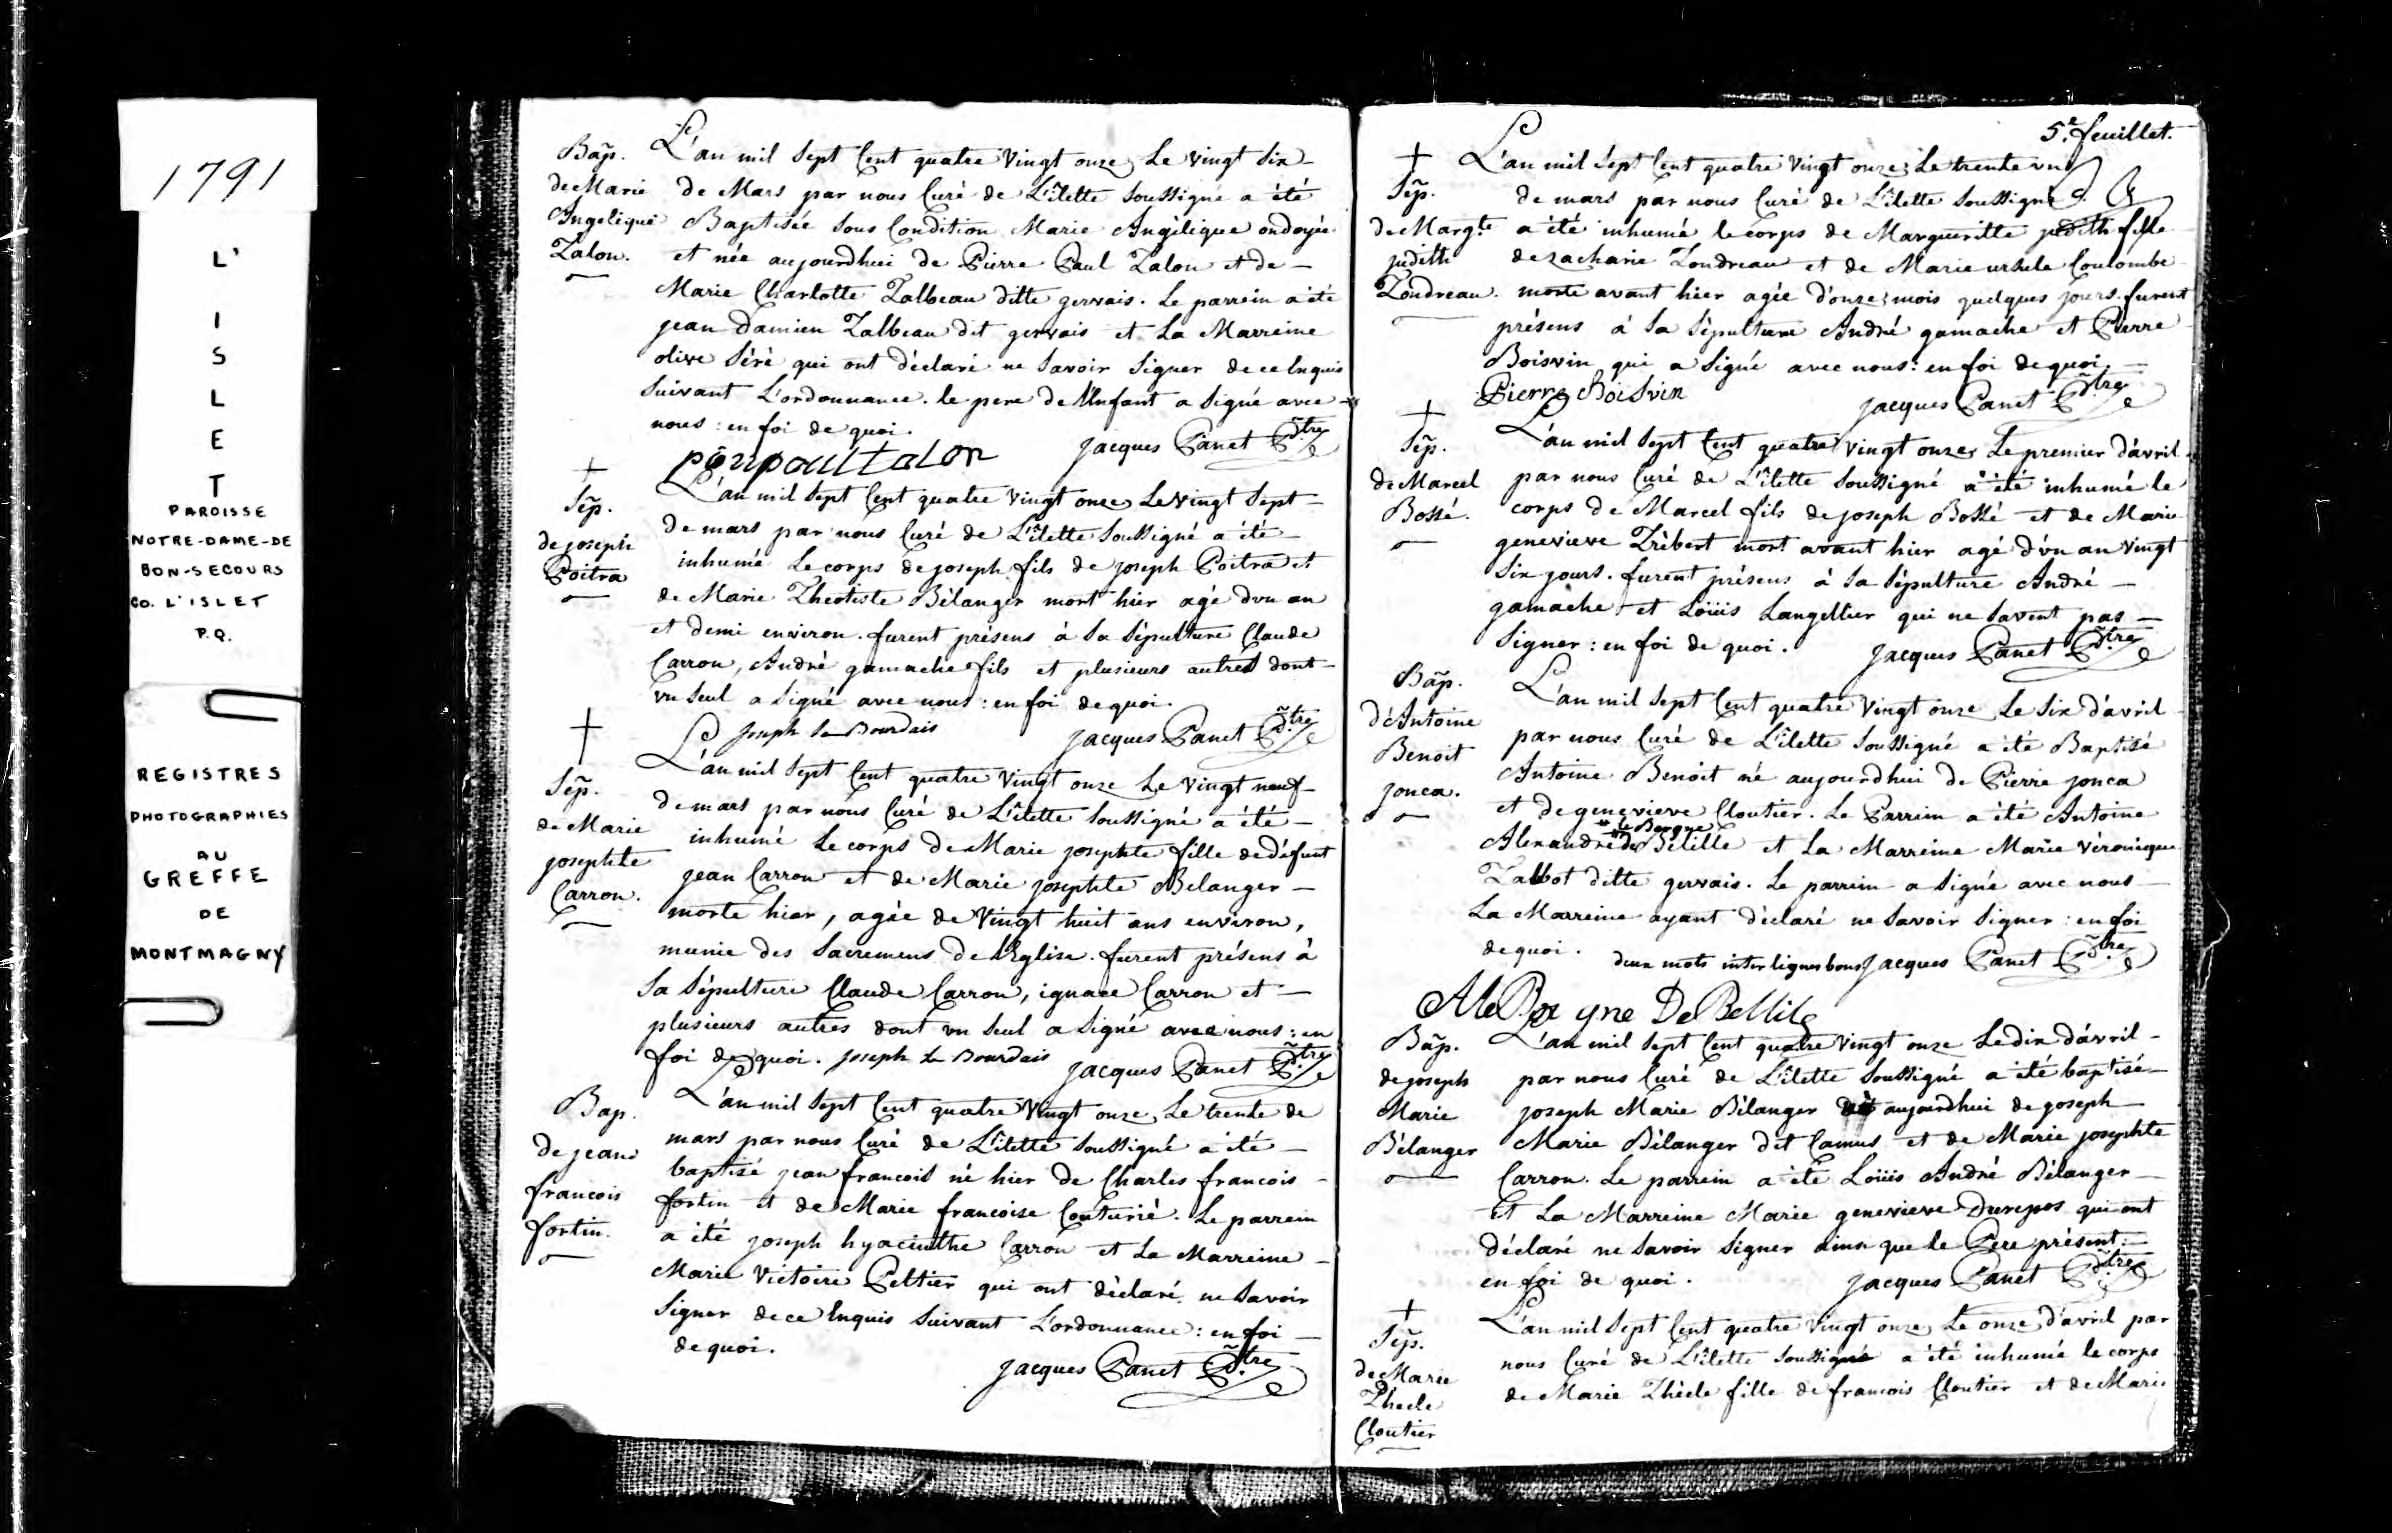 1791
L'
I
S
L
E
T
PAROISSE
NOTRE-DAME-DE
BON-SECOURS
CO. L'ISLET
P.Q.
REGISTRES
PHOTOGRAPHIES
AU
GREFFE
DE
MONTMAGNY
Bap̃.
de Marie
Angelique
Talon.
L'an mil sept Cent quatre vingt onze, Le vingt six
de Mars par nous Curé de L'ilette soussigné a été
Baptisée sous Condition Marie Angélique ondoyée
et née aujourdhui de Pierre Paul Talon et de
Marie Charlotte Talbeau ditte gervais. Le parrein a été
jean Damien Talbeau dit gervais et La Marreine
olive séré qui ont déclaré ne savoir signer de ce Enquis
suivant L'ordonnance. le pere de l'Enfant a signé avec
nous : en foi de quoi.
jacques Panet P̃tre
pierpaultalon
†
Sep̃.
de joseph
Poitra
L'an mil sept Cent quatre vingt onze, Le vingt sept
de mars par nous Curé de L'ilette soussigné a été
inhumé Le corps de joseph fils de joseph Poitra et
de Marie Theotiste Bélanger mort hier agé d'vn an
et demi environ. furent présens à sa sépulture Claude
Carron, André gamache fils et plusieurs autres dont
vn seul a signé avec nous : en foi de quoi.
joseph Le Bourdais jacques Panet P̃tre
†
Sep̃.
de Marie
josephte
Carron.
L'an mil sept Cent quatre vingt onze Le vingt neuf
de mars par nous Curé de L'ilette soussigné a été
inhumé Le corps de Marie josephte fille de défunt
jean Carron et de Marie josephte Belanger
morte hier, agée de vingt huit ans environ,
munie des sacremens de L'Eglise. furent présens à
sa sépulture Claude Carron, ignace Carron et
plusieurs autres dont vn seul a signé avec nous : en
foi de quoi. joseph Le Bourdais jacques Panet P̃tre
Bap.
de jean
francois
fortin.
L'an mil sept Cent quatre vingt onze, Le trente de
mars par nous Curé de L'ilette soussigné a été
baptisé jean francois né hier de Charles francois
fortin et de Marie francoise Couturié. Le parrein
a été joseph hyacinthe Carron et La Marreine
Marie Victoire Peltier qui ont déclaré ne savoir
signer de ce Enquis suivant L'ordonnance : en foi
de quoi.
jacques Panet P̃tre
5.e feuillet.
†
Sep̃.
de Marg.te
judith
Tondreau.
L'an mil sept Cent quatre vingt onze, Le trente vn
de mars par nous Curé de L'ilette soussigné
a été inhumé le corps de Margueritte judith fille
de zacharie Tondreau et de Marie ursule Coulombe
morte avant hier agée d'onze mois quelques jours. furent
présens à sa sépulture André gamache et Pierre
Boisvin qui a signé avec nous : en foi de quoi.
Pierre Boisvin
jacques Panet P̃tre
†
Sep̃.
de Marcel
Bossé.
L'an mil sept Cent quatre vingt onze, Le premier d'avril
par nous Curé de L'ilette soussigné a été inhumé le
corps de Marcel fils de joseph Bossé et de Marie
genevieve Trébert mort avant hier agé d'vn an vingt
six jours. furent présens à sa sépulture André
gamache et Loüis Langellier qui ne savent pas
signer : en foi de quoi. jacques Panet P̃tre
Bap̃.
d'Antoine
Benoit
jonca.
L'an mil sept Cent quatre vingt onze Le six d'avril
par nous Curé de L'ilette soussigné a été Baptisé
Antoine Benoit né aujourdhui de Pierre jonca
et de genevieve Cloutier. Le Parrein a été Antoine
le Borgne
Alexandre de Belille et La Marreine Marie véronique
Talbot ditte gervais. Le parrein a signé avec nous
La Marreine ayant déclaré ne savoir signer : en foi
de quoi. deux mots interlignes bons jacques Panet P̃tre
ALeBorgne DeBellile
Bap̃.
de joseph
Marie
Bélanger
L'an mil sept Cent quatre vingt onze Le dix d'avril
par nous Curé de L'ilette soussigné a été baptisé
joseph Marie Bélanger né aujourdhui de joseph
Marie Bélanger dit Camus et de Marie josephte
Carron. Le parrein a été Loüis André Bélanger
Et La Marreine Marie genevieve Durepos qui ont
déclaré ne savoir signer ainsi que le Pere présent :
en foi de quoi. jacques Panet P̃tre
†
Sep̃.
de Marie
Thecle
Cloutier
L'an mil sept Cent quatre vingt onze, Le onze d'avril par
nous Curé de L'ilette soussigné a été inhumé le corps
de Marie Thècle fille de francois Cloutier et de Marie